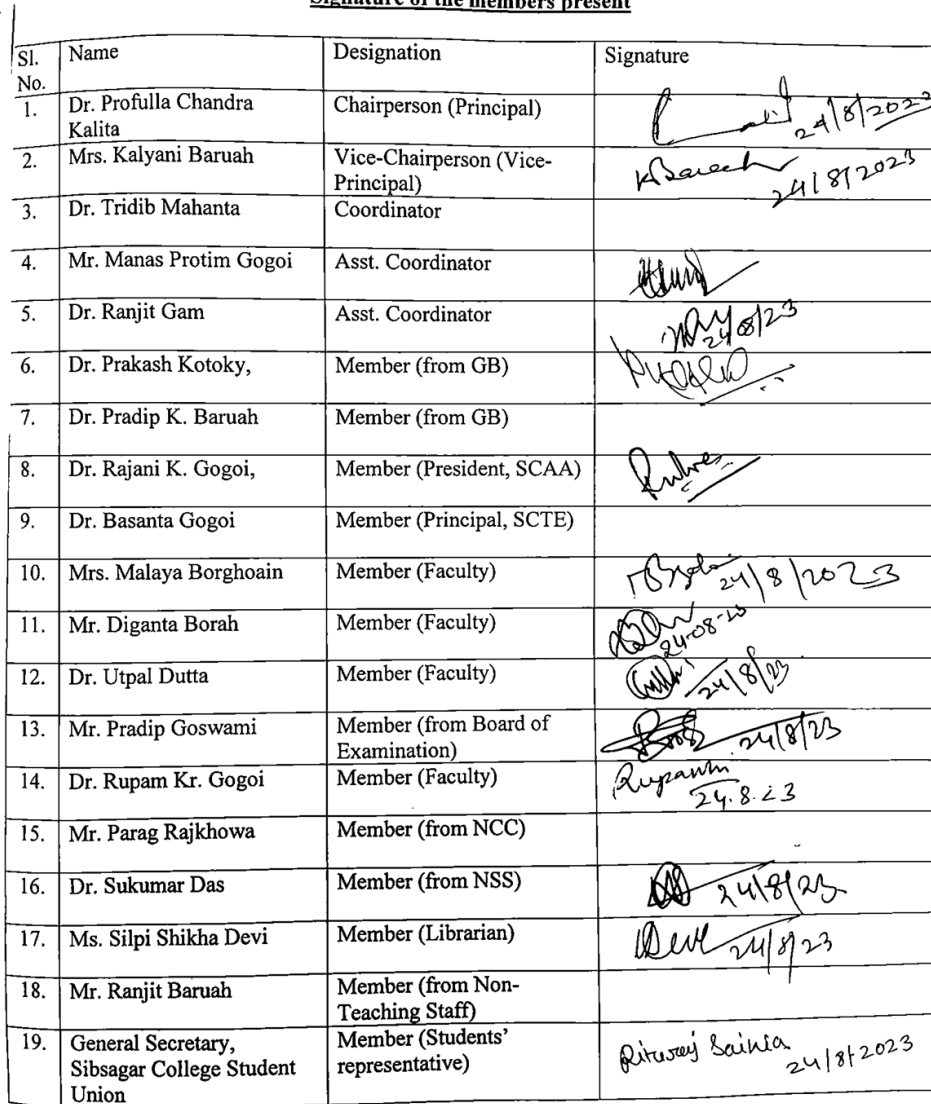 Signature of the members present
Sl. No. Name Designation Signature
1. Dr. Profulla Chandra Kalita Chairperson (Principal) 24/8/2023
2. Mrs. Kalyani Baruah Vice-Chairperson (Vice-Principal) KBaruah 24/8/2023
3. Dr. Tridib Mahanta Coordinator
4. Mr. Manas Protim Gogoi Asst. Coordinator
5. Dr. Ranjit Gam Asst. Coordinator 24/08/23
6. Dr. Prakash Kotoky, Member (from GB)
7. Dr. Pradip K. Baruah Member (from GB)
8. Dr. Rajani K. Gogoi, Member (President, SCAA)
9. Dr. Basanta Gogoi Member (Principal, SCTE)
10. Mrs. Malaya Borghoain Member (Faculty) 24/8/2023
11. Mr. Diganta Borah Member (Faculty) 24-08-23
12. Dr. Utpal Dutta Member (Faculty) 24/8/23
13. Mr. Pradip Goswami Member (from Board of Examination) 24/8/23
14. Dr. Rupam Kr. Gogoi Member (Faculty) 24.8.23
15. Mr. Parag Rajkhowa Member (from NCC)
16. Dr. Sukumar Das Member (from NSS) 24/8/23
17. Ms. Silpi Shikha Devi Member (Librarian) Devi 24/8/23
18. Mr. Ranjit Baruah Member (from Non-Teaching Staff)
19. General Secretary, Sibsagar College Student Union Member (Students' representative) Rituraj Saikia 24/8/2023